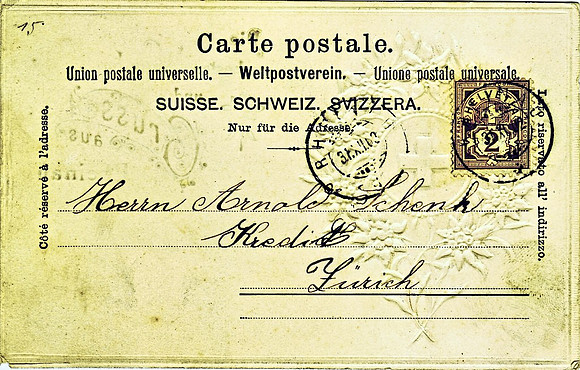 15.
Carte postale.
Union postale universelle. — Weltpostverein. — Unione postale universale.
SUISSE. SCHWEIZ. SVIZZERA.
Nur für die Adresse.
Côté réservé à l'adresse.
Lato riservato all' indirizzo.
HELVETIA
2
Herrn Arnold Schenk
Kredit
Zürich